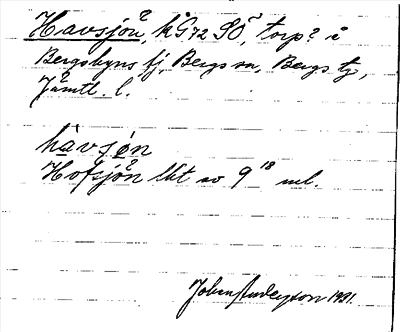 Havsjön, kG72 SO, torp? i
Bergsbyns fj, Bergs sn, Bergs tg,
Jämtl. l.
håvsjǫn
Hofsjön lht av 9 18 ml.
John Andersson 1931.